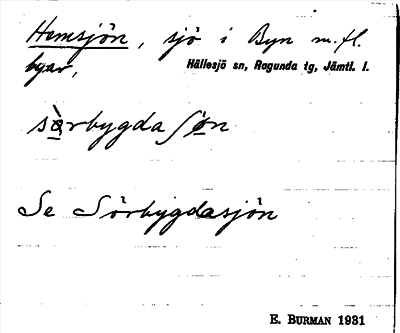 Hemsjön, sjö i Byn m.fl.
byar, Hällesjö sn, Ragunda tg, Jämtl. l.
sàrbygdaʃøn
Se Sörbygdasjön
E. BURMAN 1931